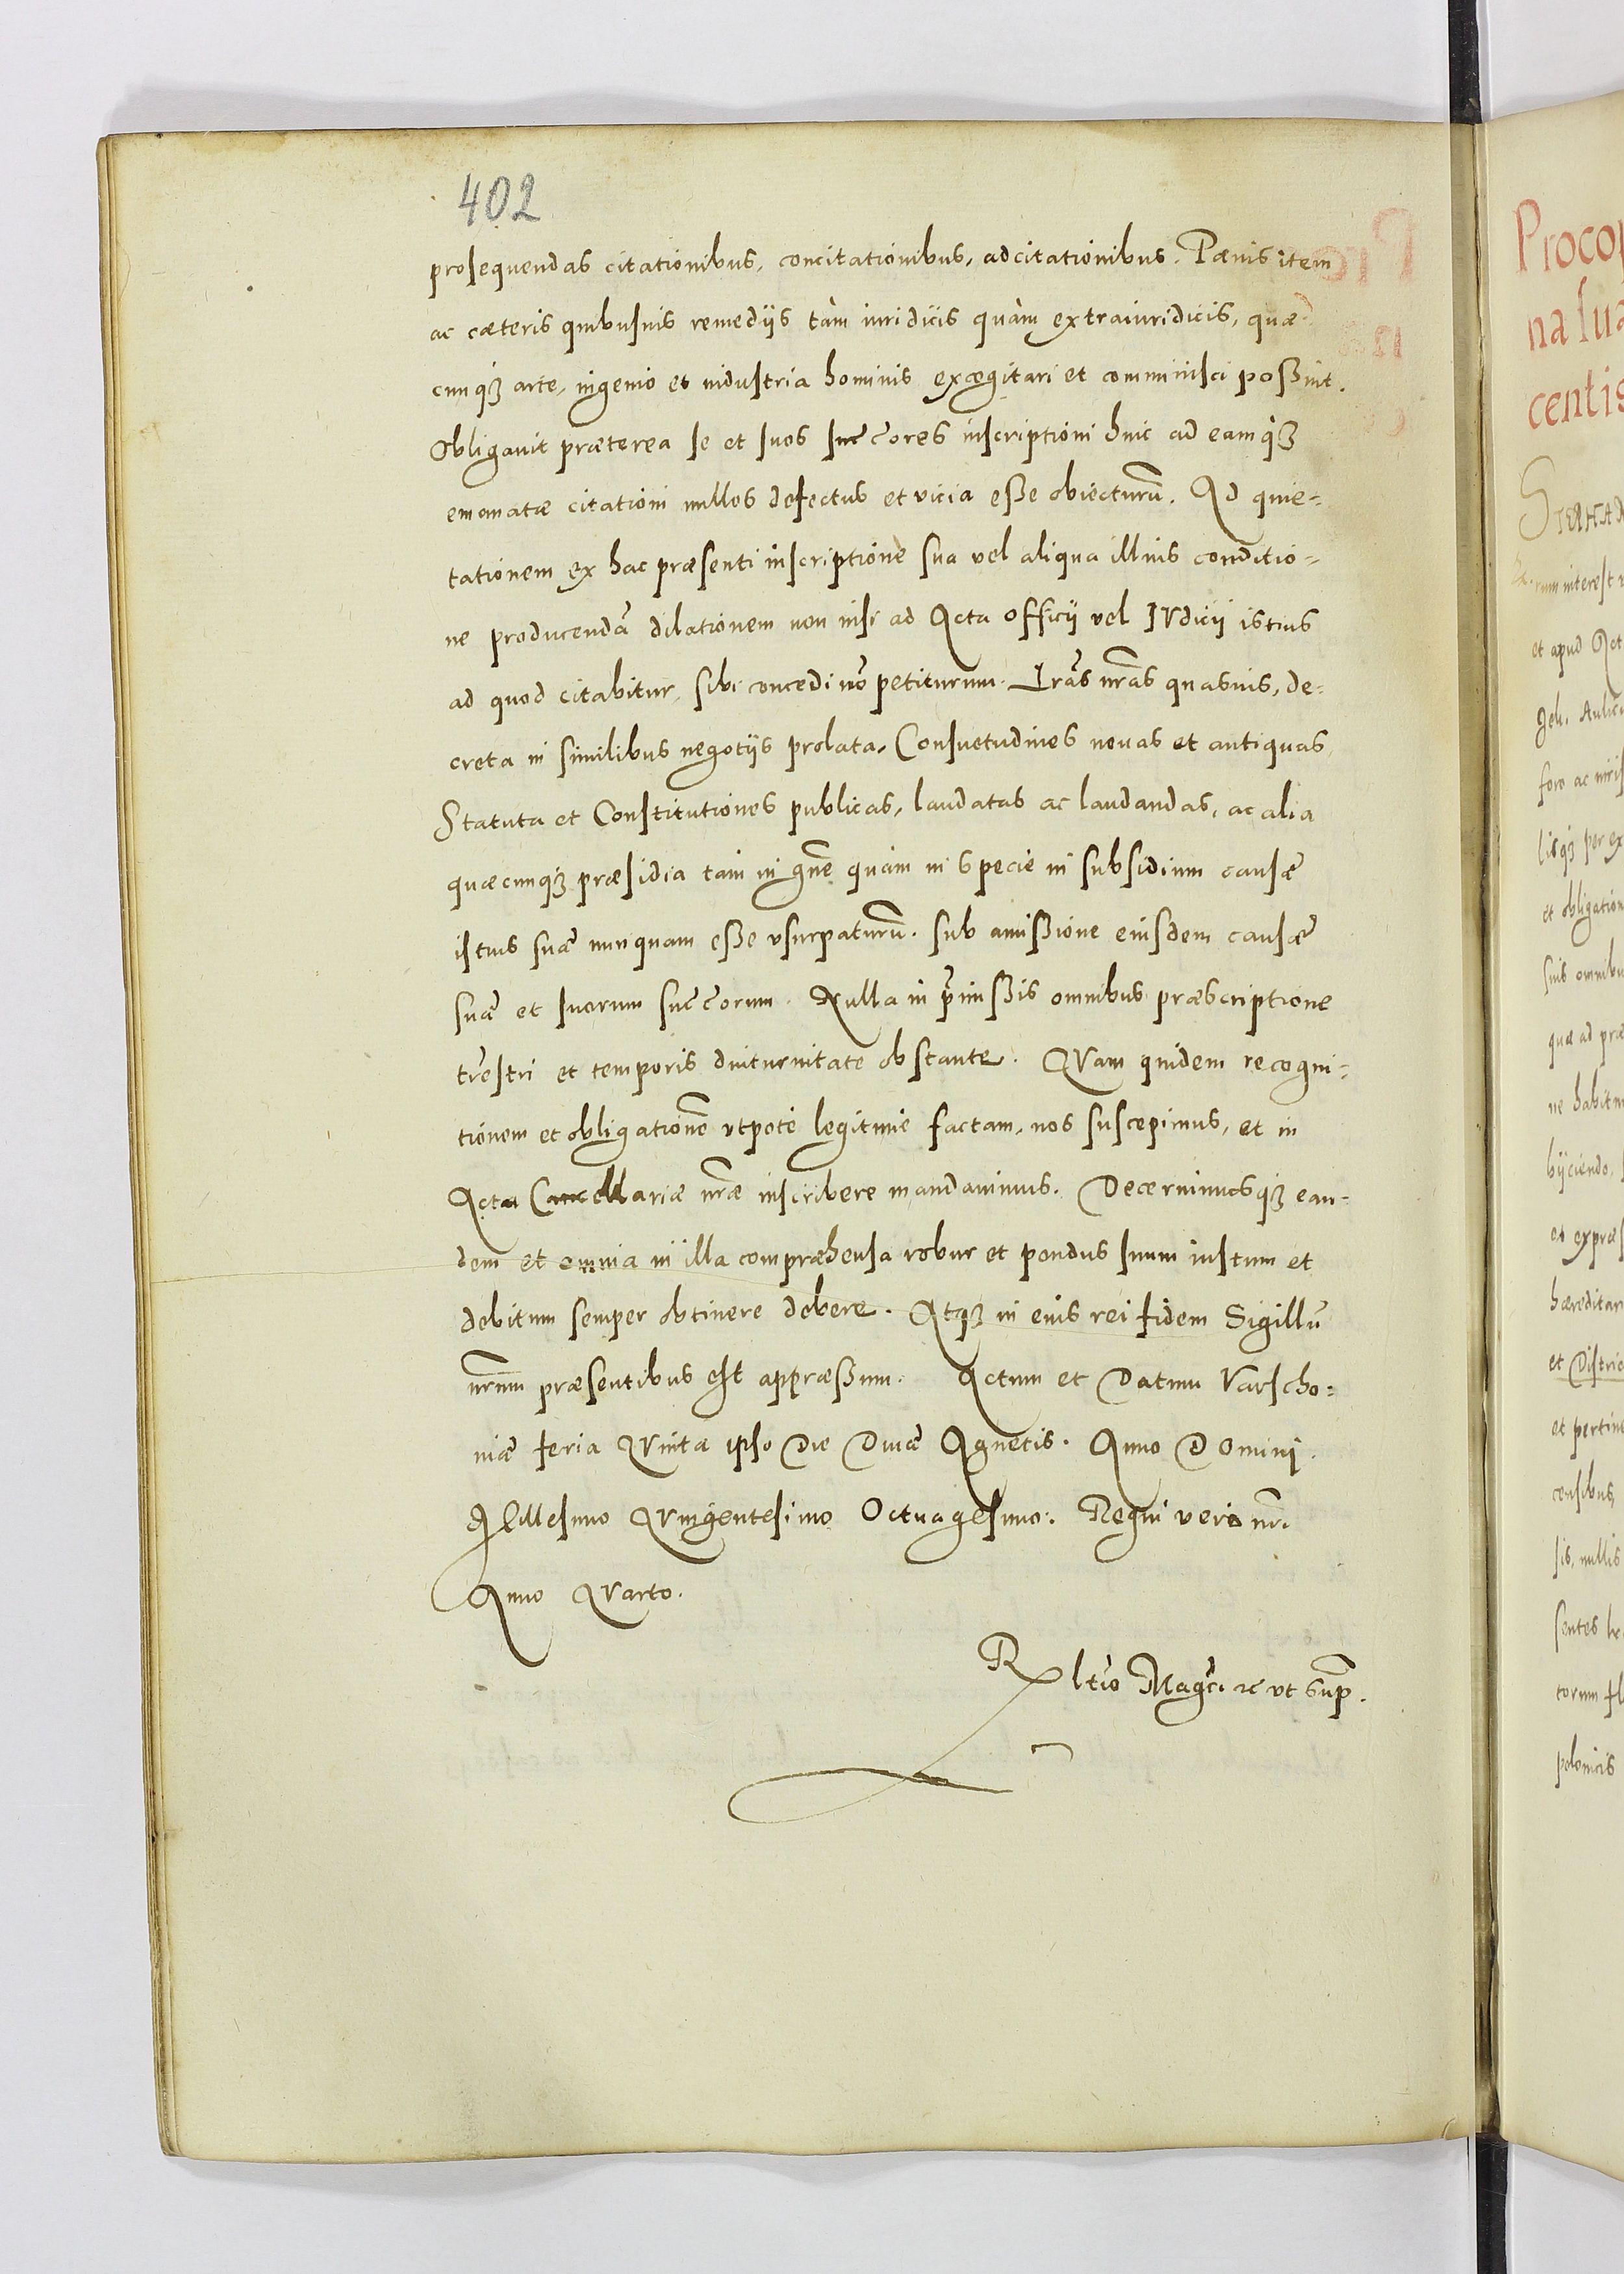 402
prosequendas citationibus, concitationibus, adcitationibus. Pænis item
ac cæteris quibusuis remedijs tàm iuridicis quàm extraiuridicis, quæ
cunqꝫ arte, ingenio et industria hominis excogitari et comminisci possint.
Obligauit præterea se et suos succ̄ores inscriptioni huic ad eamqꝫ
emanatæ citationi nullos defectus et vicia esse obiecturū. Ad quie-
tationem ex hac præsenti inscriptione sua vel aliqua illius conditio-
ne producendā dilationem non nisi ad Acta officij vel IVdicij istius
ad quod citabitur, sibi concedi nō petiturum. Lr̃as nr̃as quasuis, de-
creta in similibus negotijs prolata, Consuetudines nouas et antiquas,
Statuta et Constitutiones publicas, laudatas ac laudandas, ac alia
quæcunqꝫ præsidia tam in gñe quàm in specie in subsidium causæ
istius suæ nunquam esse vsurpaturū. sub amissione eiusdem causæ
suæ et suorum succ̄orum. Nulla in p̄missis omnibus præscriptione
tr̃estri et temporis diuturnitate obstante. QVam quidem recogni-
tionem et obligationē vtpote legitimè factam, nos suscepimus, et in
Acta Cancellariæ nr̃æ inscribere mandauimus. Decernimusqꝫ ean-
dem et omnia in illa compræhensa robur et pondus suum iustum et
debitum semper obtinere debere. Atqꝫ in eius rei fidem Sigillū
nr̃um præsentibus est appræssum. Actum et Datum Varscho-
uiæ feria QVinta ipso die Diuæ Agnetis. Anno Domini
Millesimo QVingentesimo Octuagesimo. Regni verò nr̃i
Anno QVarto.
R ltio Magci ꝛc vt sup̄.
Procop
na sua
centis
rum interest
et apud Act
foro ac
lisqꝫ per ex
et obligation
suis omnibu
quæ ad præ
ne habitu
bijciendo.
et expræs
hæreditari
et Distric
et pertine
censibus,
sis, nullis
sentes
torum
polonicis